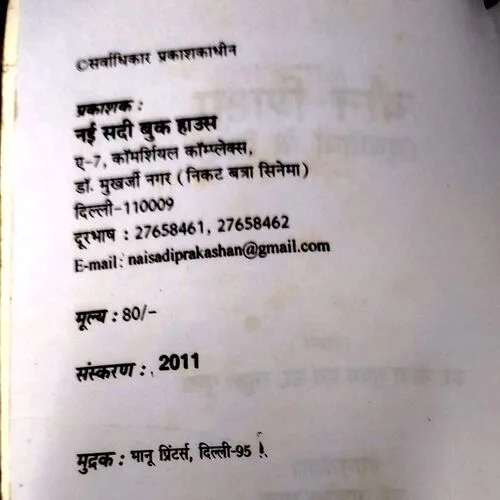 ©सर्वाधिकार प्रकाशकाधीन
प्रकाशक :
नई सदी बुक हाउस
ए-7, कॉमर्शियल कॉम्प्लेक्स,
डॉ. मुखर्जी नगर (निकट बत्रा सिनेमा)
दिल्ली-110009
दूरभाष : 27658461, 27658462
E-mail: naisadiprakashan@gmail.com
मूल्य : 80/-
संस्करण : 2011
मुद्रक : भानू प्रिंटर्स, दिल्ली-95